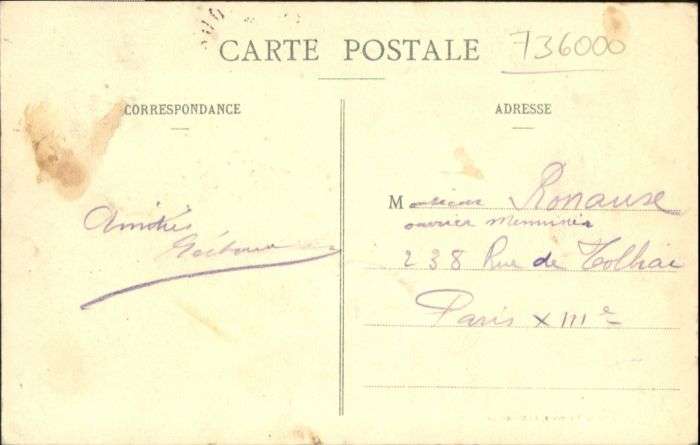 CARTE POSTALE
736000
CORRESPONDANCE
ADRESSE
Amitiés
Monsieur Ronausse
ouvrier menuisier
238 Rue de Tolbiac
Paris XIIIe